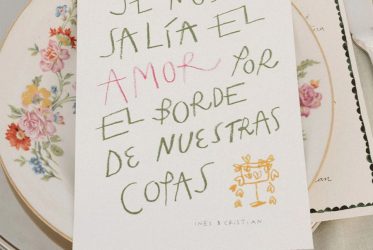 SE NOS
SALÍA EL
AMOR POR
EL BORDE
DE NUESTRAS
COPAS
INES & CRISTIAN